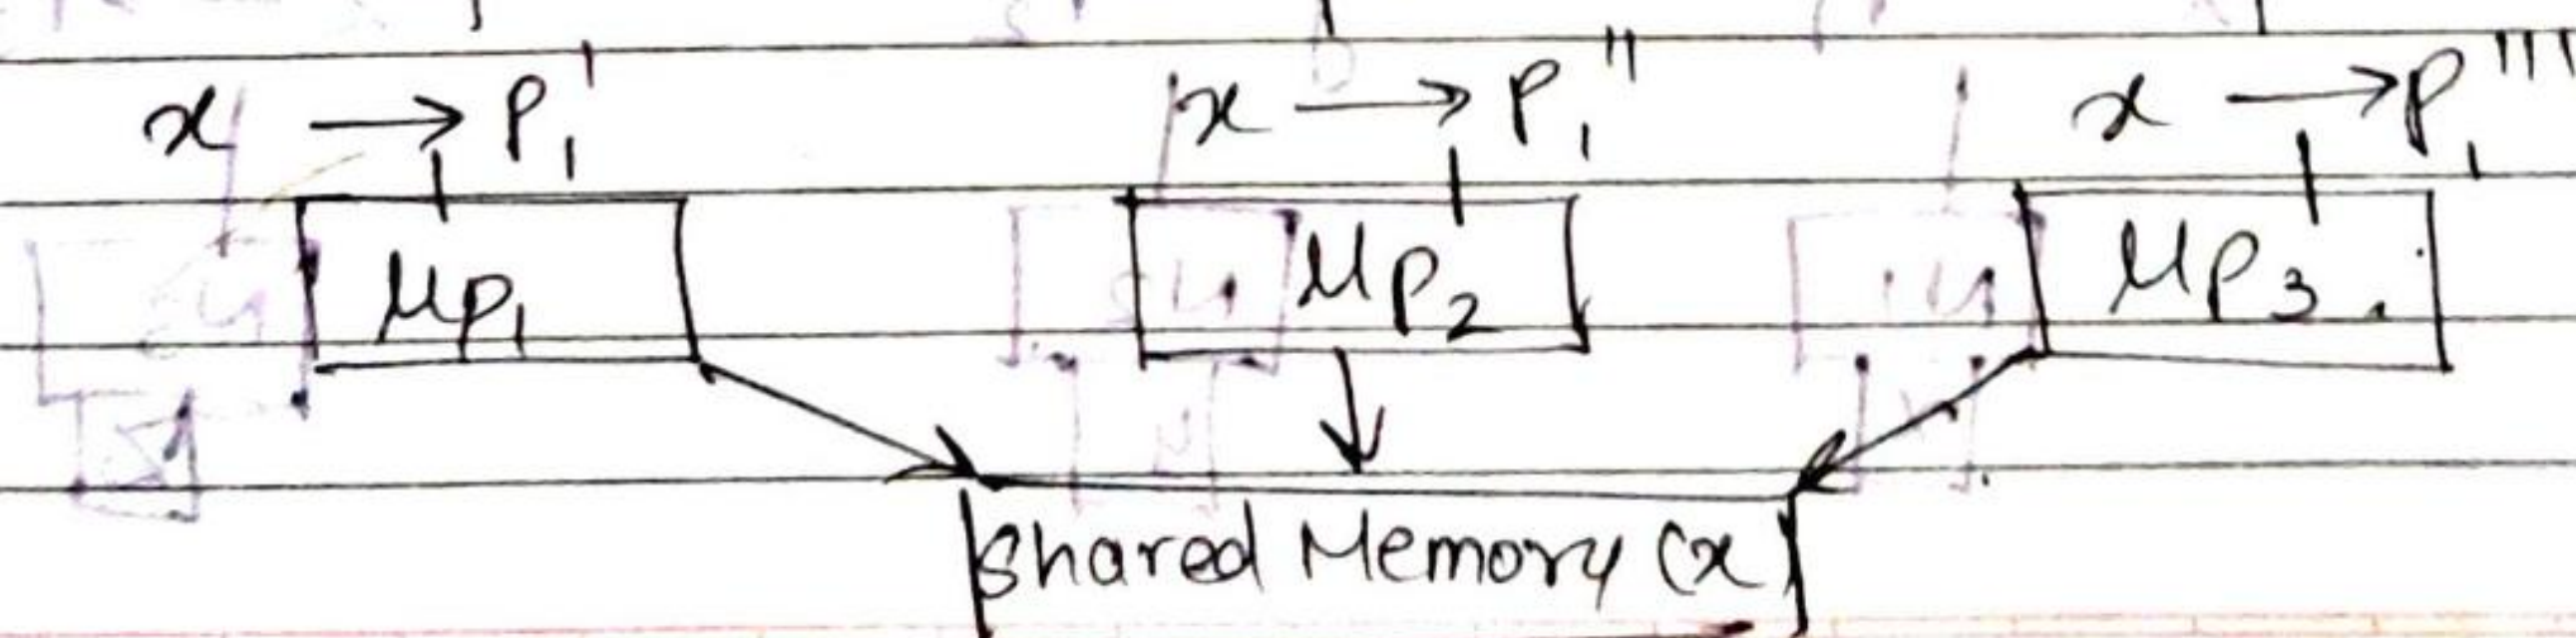 x → P₁' x → P₁'' x → P₁'''
μP₁ μP₂ μP₃.
Shared Memory (x)